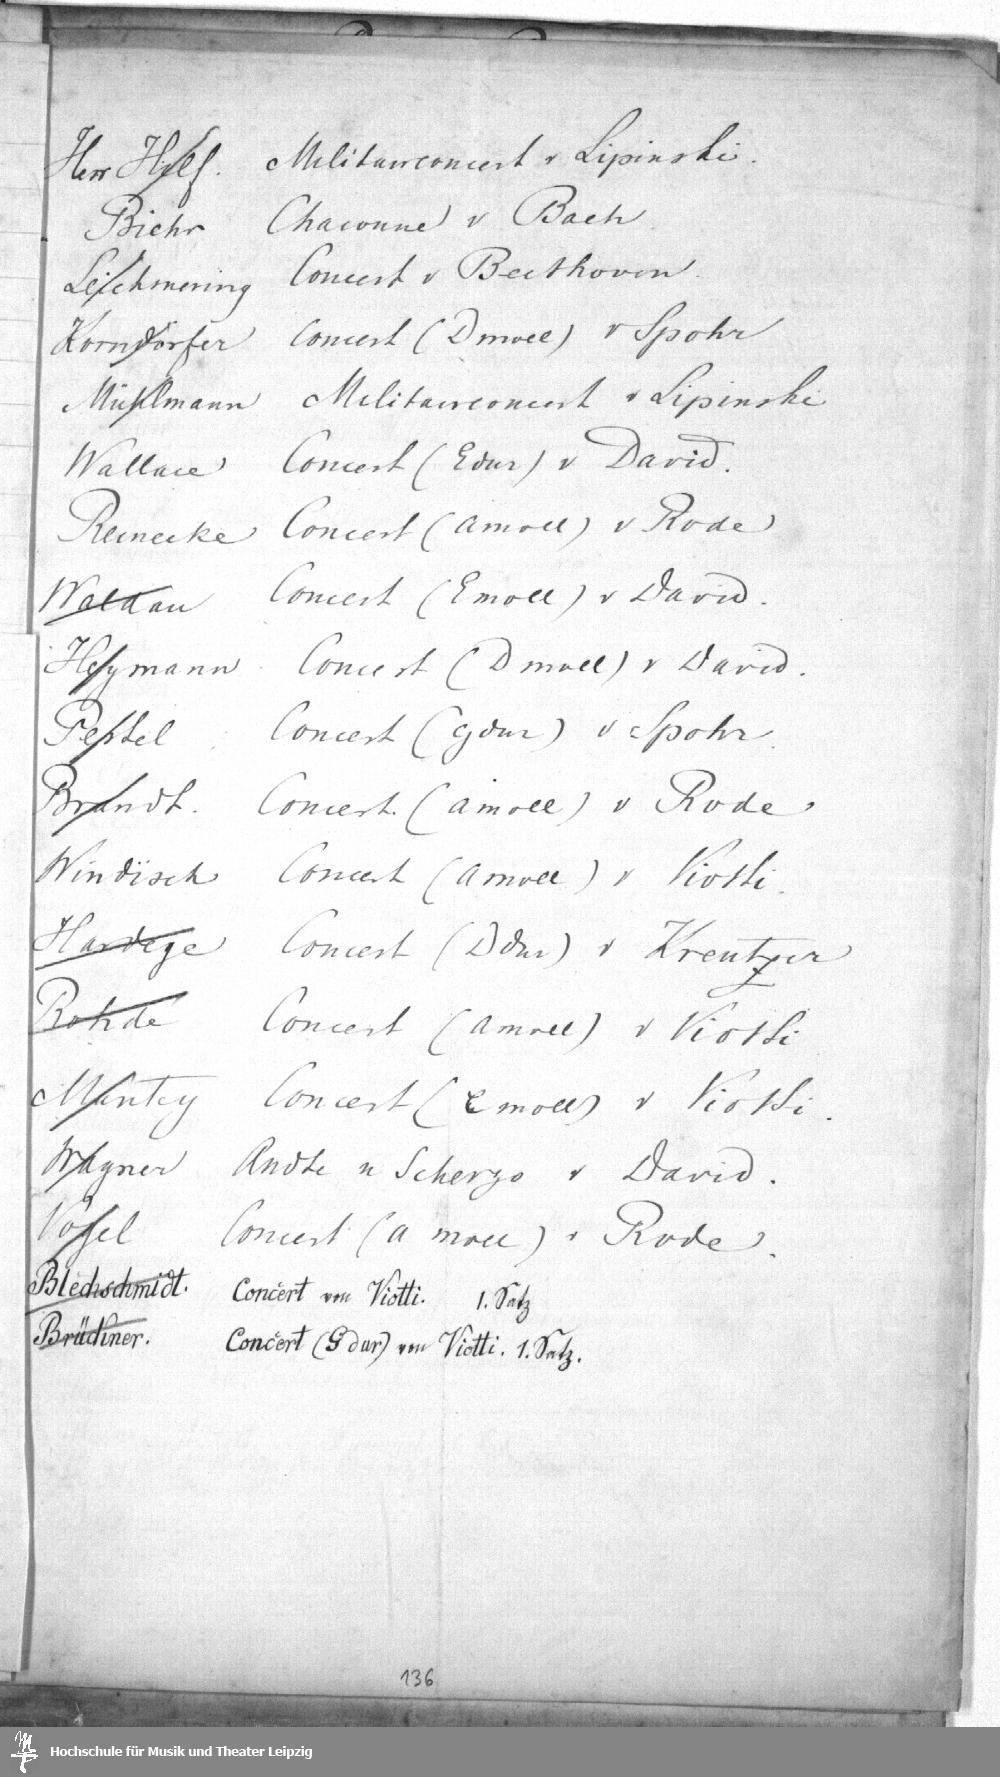 Herr Hilf. Militairconcert v Lipinski.
Biehr Chaconne v Bach
Leichmering Concert v Beethoven.
Korndörfer Concert (Dmoll) v Spohr
Mühlmann Militairconcert v Lipinski
Wallace Concert (Edur) v David.
Reinecke Concert (Amoll) v Rode
Waldau Concert (Emoll) v David.
Heymann Concert (Dmoll) v David.
Pestel Concert (Gdur) v Spohr.
Brandt. Concert. (Amoll) v Rode
Windisch Concert (Amoll) v Viotti.
Hardege Concert (Ddur) v Kreutzer
Rohde Concert (Amoll) v Viotti
Mantey Concert (Emoll) v Viotti.
Wagner Andte u Scherzo v David.
Concert (A moll) v Rode.
Blechschmidt. Concert von Viotti. 1. Satz
Brückner. Concert (G dur) von Viotti. 1. Satz.
136
Hochschule für Musik und Theater Leipzig